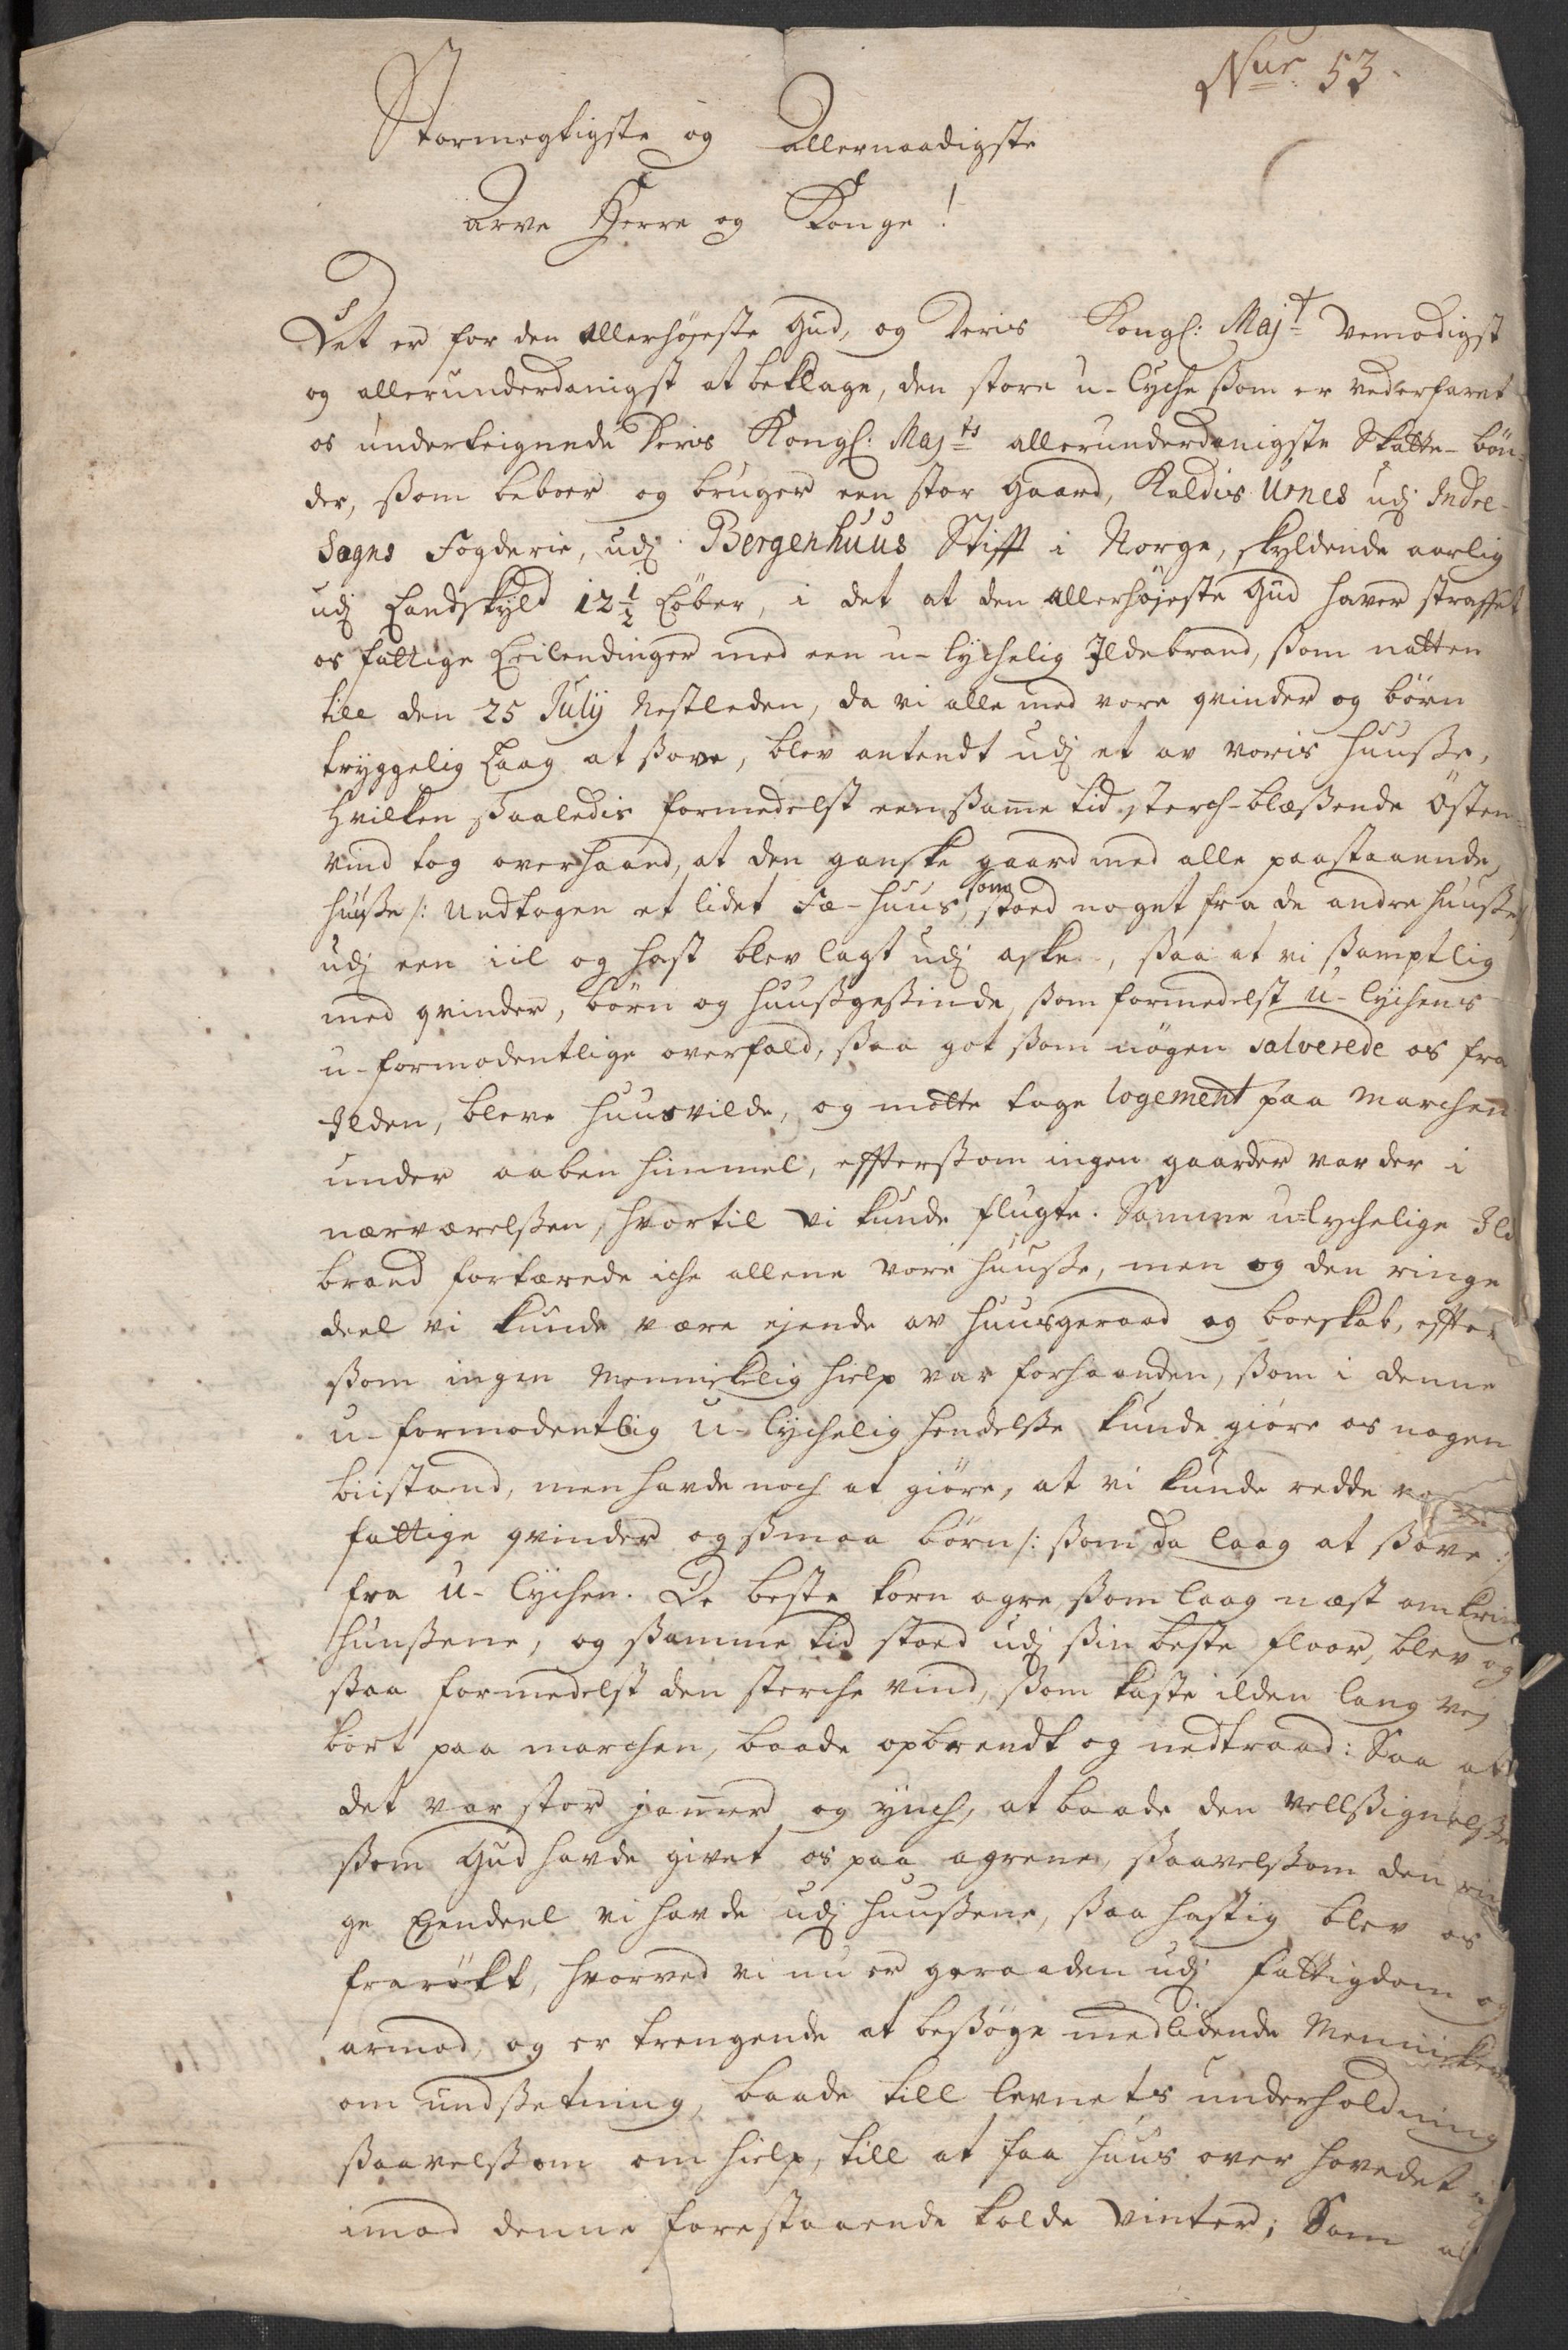 Nur. 53.
Stormegtigste og Allernaadigste
Arve Herre og Konge!
Det er for den Allerhøjeste Gud, og Deris Kongl: Majt vemodigst
og allerunderdanigst at beklage, den store u-lyche ßom er vederfaret
os underteignede Deris Kongl: Majts allerunderdanigste Skatte-bøn-
der, ßom beboer og bruger een stor Gaard, Kaldis Urnes udj Indre-
Sogns Fogderie, udj Bergenhuus Stifft i Norge, skyldende aarlig
udj Landskyld 12½ Løber, i det at den Allerhøjeste Gud haver straffet
os fattige Eilendinger med een u-lychelig Ildebrand, ßom natten
till den 25 Julij Nestleden, da vi alle med vore qvinder og børn
tryggelig Laag at ßove, blev antendt udj et av voris huuße,
hvilken ßaaledis formedelst eenßame tid sterch-blæßende Østen-
vind tog overhaand, at den ganske gaard med alle paastaaende
huuße /: Undtagen et lidet Fæ-huus, som stoed noget fra de andre huuße
udj een iil og hast blev lagt udj aske, ßaa at vi ßamptlig
med qvinder, børn og huußgeßinde, ßom formedelst u-lychens
u-formodentlige overfald, ßaa got ßom nøgen salverede os fra
Ilden, bleve huusvilde, og motte tage logement paa Marchen
under aaben himmel, effterßom ingen gaarder var der i
nærværelßen, hvortil vi kunde flugte. Samme ulychelige Ild
brand fortærede iche allene vore huuße, men og den ringe
deel vi kunde være ejende av huusgeraad og boeskab, effter
ßom ingen Menniskelig hielp var forhaanden, ßom i denne
u-formodentlig u-lychelig hendelße kunde giøre os nogen
biistand, men havde noch at giøre, at vi kunde redde
fattige qvinder og ßmaa børn /: ßom da laag at ßove :/
fra u-lychen. De beste korn agre, ßom laag næst omkring
huußene, og ßamme tid stoed udj ßin beste floor, blev og
ßaa formedelst den sterche vind, ßom kaste ilden lang vej
bort paa marchen, baade opbrendt og nedtraad: Saa at
det var stor jamer og ynch, at baade den vellßignelße
ßom Gud havde givet os paa agrene, ßaavelßom den rin
ge Ejendeel vi havde udj huußene, ßaa hastig blev os
frarøkt, hvorved vi nu er geraaden udj fattigdom og
armod, og er trengende at beßøge medlidende Mennisker
om undßetning, baade till levnets underholdning
ßaavelßom om hielp, till at faa huus over hovedet
imod denne forestaaende kolde Vinter; Som